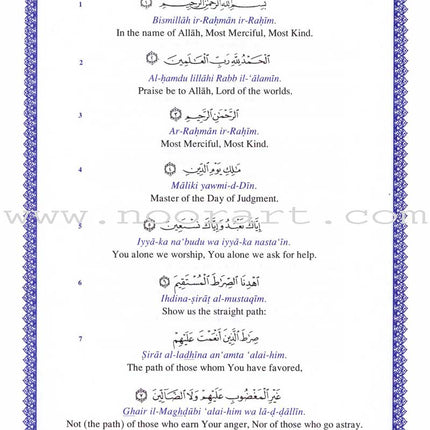 1
بِسْمِ اللَّهِ الرَّحْمَٰنِ الرَّحِيمِ ۝١
Bismillāh ir-Raḥmān ir-Raḥīm.
In the name of Allāh, Most Merciful, Most Kind.
2
الْحَمْدُ لِلَّهِ رَبِّ الْعَالَمِينَ ۝٢
Al-ḥamdu lillāhi Rabb il-‘ālamīn.
Praise be to Allāh, Lord of the worlds.
3
الرَّحْمَٰنِ الرَّحِيمِ ۝٣
Ar-Raḥmān ir-Raḥīm.
Most Merciful, Most Kind.
4
مَالِكِ يَوْمِ الدِّينِ ۝٤
Māliki yawmi-d-Dīn.
Master of the Day of Judgment.
www.noorart.com
5
إِيَّاكَ نَعْبُدُ وَإِيَّاكَ نَسْتَعِينُ ۝٥
Iyyā-ka na‘budu wa iyyā-ka nasta‘īn.
You alone we worship, You alone we ask for help.
6
اهْدِنَا الصِّرَاطَ الْمُسْتَقِيمَ ۝٦
Ihdina-ṣirāṭ al-mustaqīm.
Show us the straight path:
7
صِرَاطَ الَّذِينَ أَنْعَمْتَ عَلَيْهِمْ
Ṣirāṭ al-ladhīna an‘amta ‘alai-him.
The path of those whom You have favored,
غَيْرِ الْمَغْضُوبِ عَلَيْهِمْ وَلَا الضَّالِّينَ ۝٧
Ghair il-Maghḍūbi ‘alai-him wa lā-ḍ-ḍāllīn.
Not (the path) of those who earn Your anger, Nor of those who go astray.